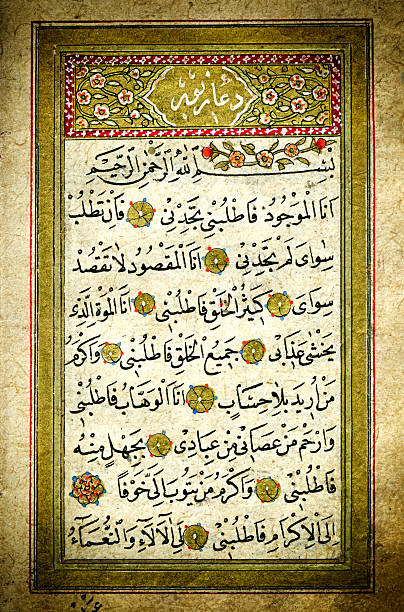 دعاء توبه
بسم الله الرحمن الرحيم
انا الموجود فاطلبنى تجدنى فان تطلب
سواى لم تجدنى انا المقصود لا تقصد
سواى كثير الخلق فاطلبنى انا
يخشى عذابى جميع الخلق فاطلبنى واكرم
من اريد بلا حساب انا الوهاب فاطلبنى
وارحم من عصانى من عبادى بجهل منه
فاطلبنى واكرم من يتوب الى خوفا
الى الاكرام فاطلبنى لى الآلاء والنعماء